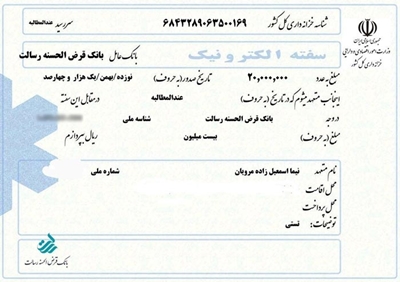 جمهوری اسلامی ایران
وزارت امور اقتصادی و دارایی
خزانه داری کل کشور
شناسه خزانه داری کل کشور ۶۸۴۳۲۸۹۰۶۳۵۰۰۱۶۹ سررسید عندالمطالبه
سفته الکترونیک بانک عامل بانک قرض الحسنه رسالت
مبلغ به عدد ۲۰,۰۰۰,۰۰۰ تاریخ صدور (به حروف) نوزده/بهمن/یک هزار و چهارصد
اینجانب متعهد میشوم که در تاریخ (به حروف) عندالمطالبه در مقابل این سفته
به حواله کرد بانک قرض الحسنه رسالت شناسه ملی
مبلغ (به حروف) بیست میلیون ریال بپردازم
نام متعهد نیما اسمعیل زاده مرویان شماره ملی
محل اقامت
محل پرداخت
توضیحات: تستی
بانک قرض الحسنه رسالت